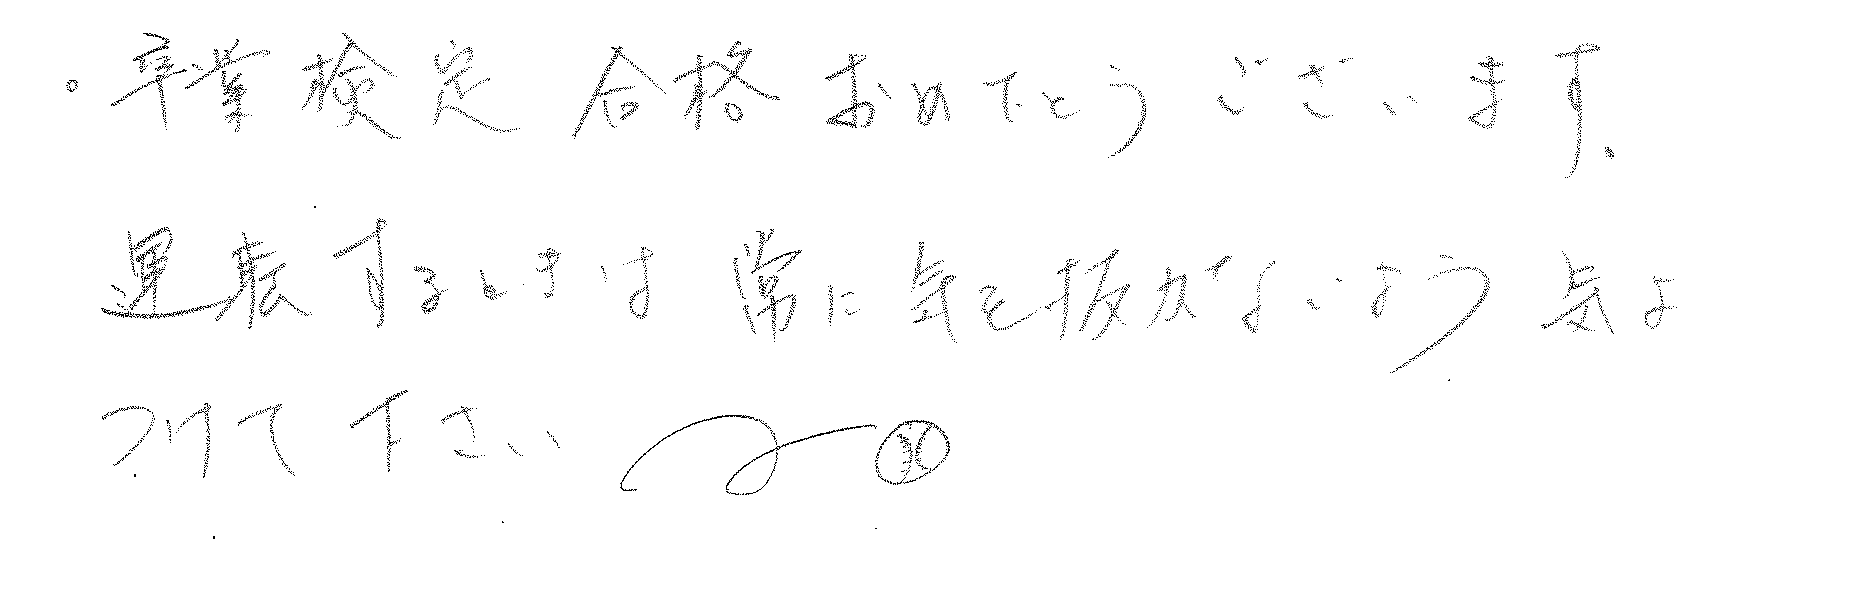 ・卒業検定 合格 おめでとう ございます.
運転するときは 常に 気を抜かないよう 気を
つけて 下さい